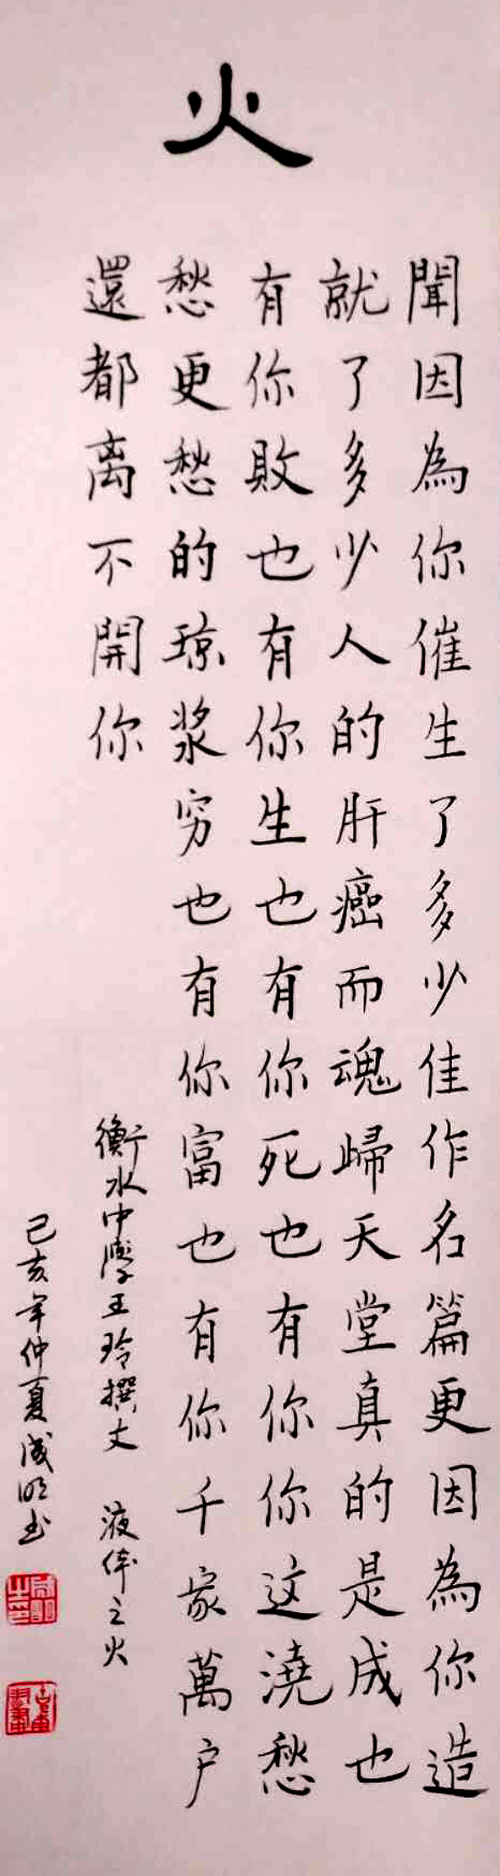 火
聞因為你催生了多少佳作名篇更因為你造
就了多少人的肝癌而魂歸天堂真的是成也
有你敗也有你生也有你死也有你你这澆愁
愁更愁的琼浆穷也有你富也有你千家萬户
還都离不開你
衡水中學王玲撰文 液体之火
己亥年仲夏成明书